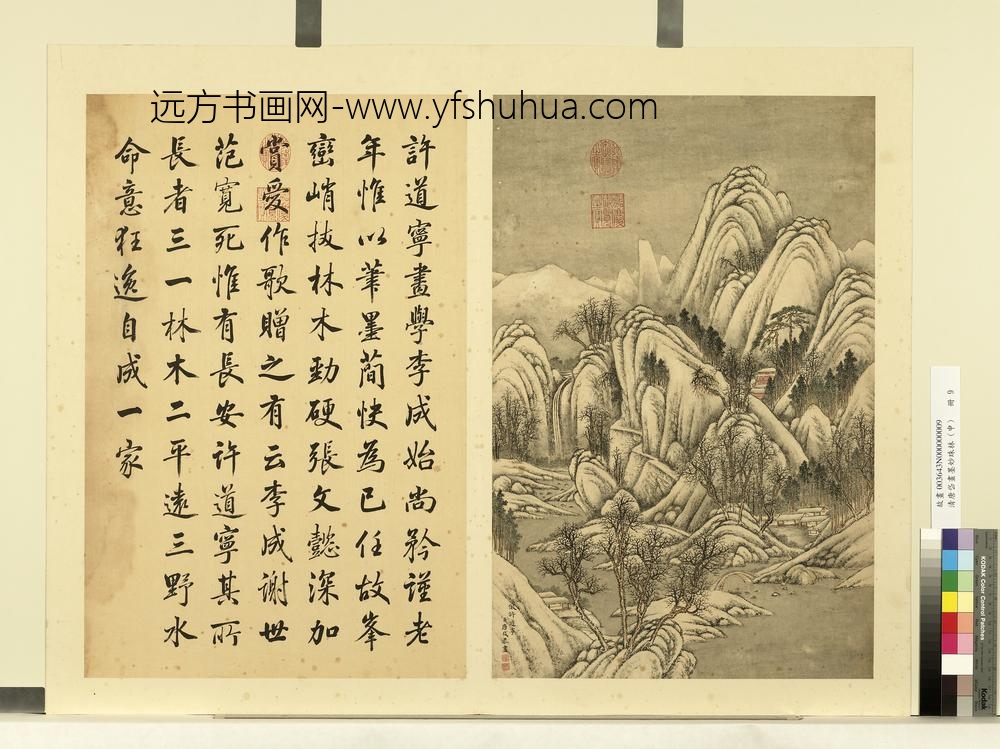 远方书画网-www.yfshuhua.com
許道寧畫學李成始尚矜謹老
年惟以筆墨蕳快為己任故峯
巒峭拔林木勁硬張文懿深加
賞愛作歌贈之有云李成謝世
范寬死惟有長安許道寧其所
長者三一林木二平遠三野水
命意狂逸自成一家
故畫003643N000000009
清唐岱畫墨妙珠林(申) 冊 9
KODAK Color Control Patches
Kodak